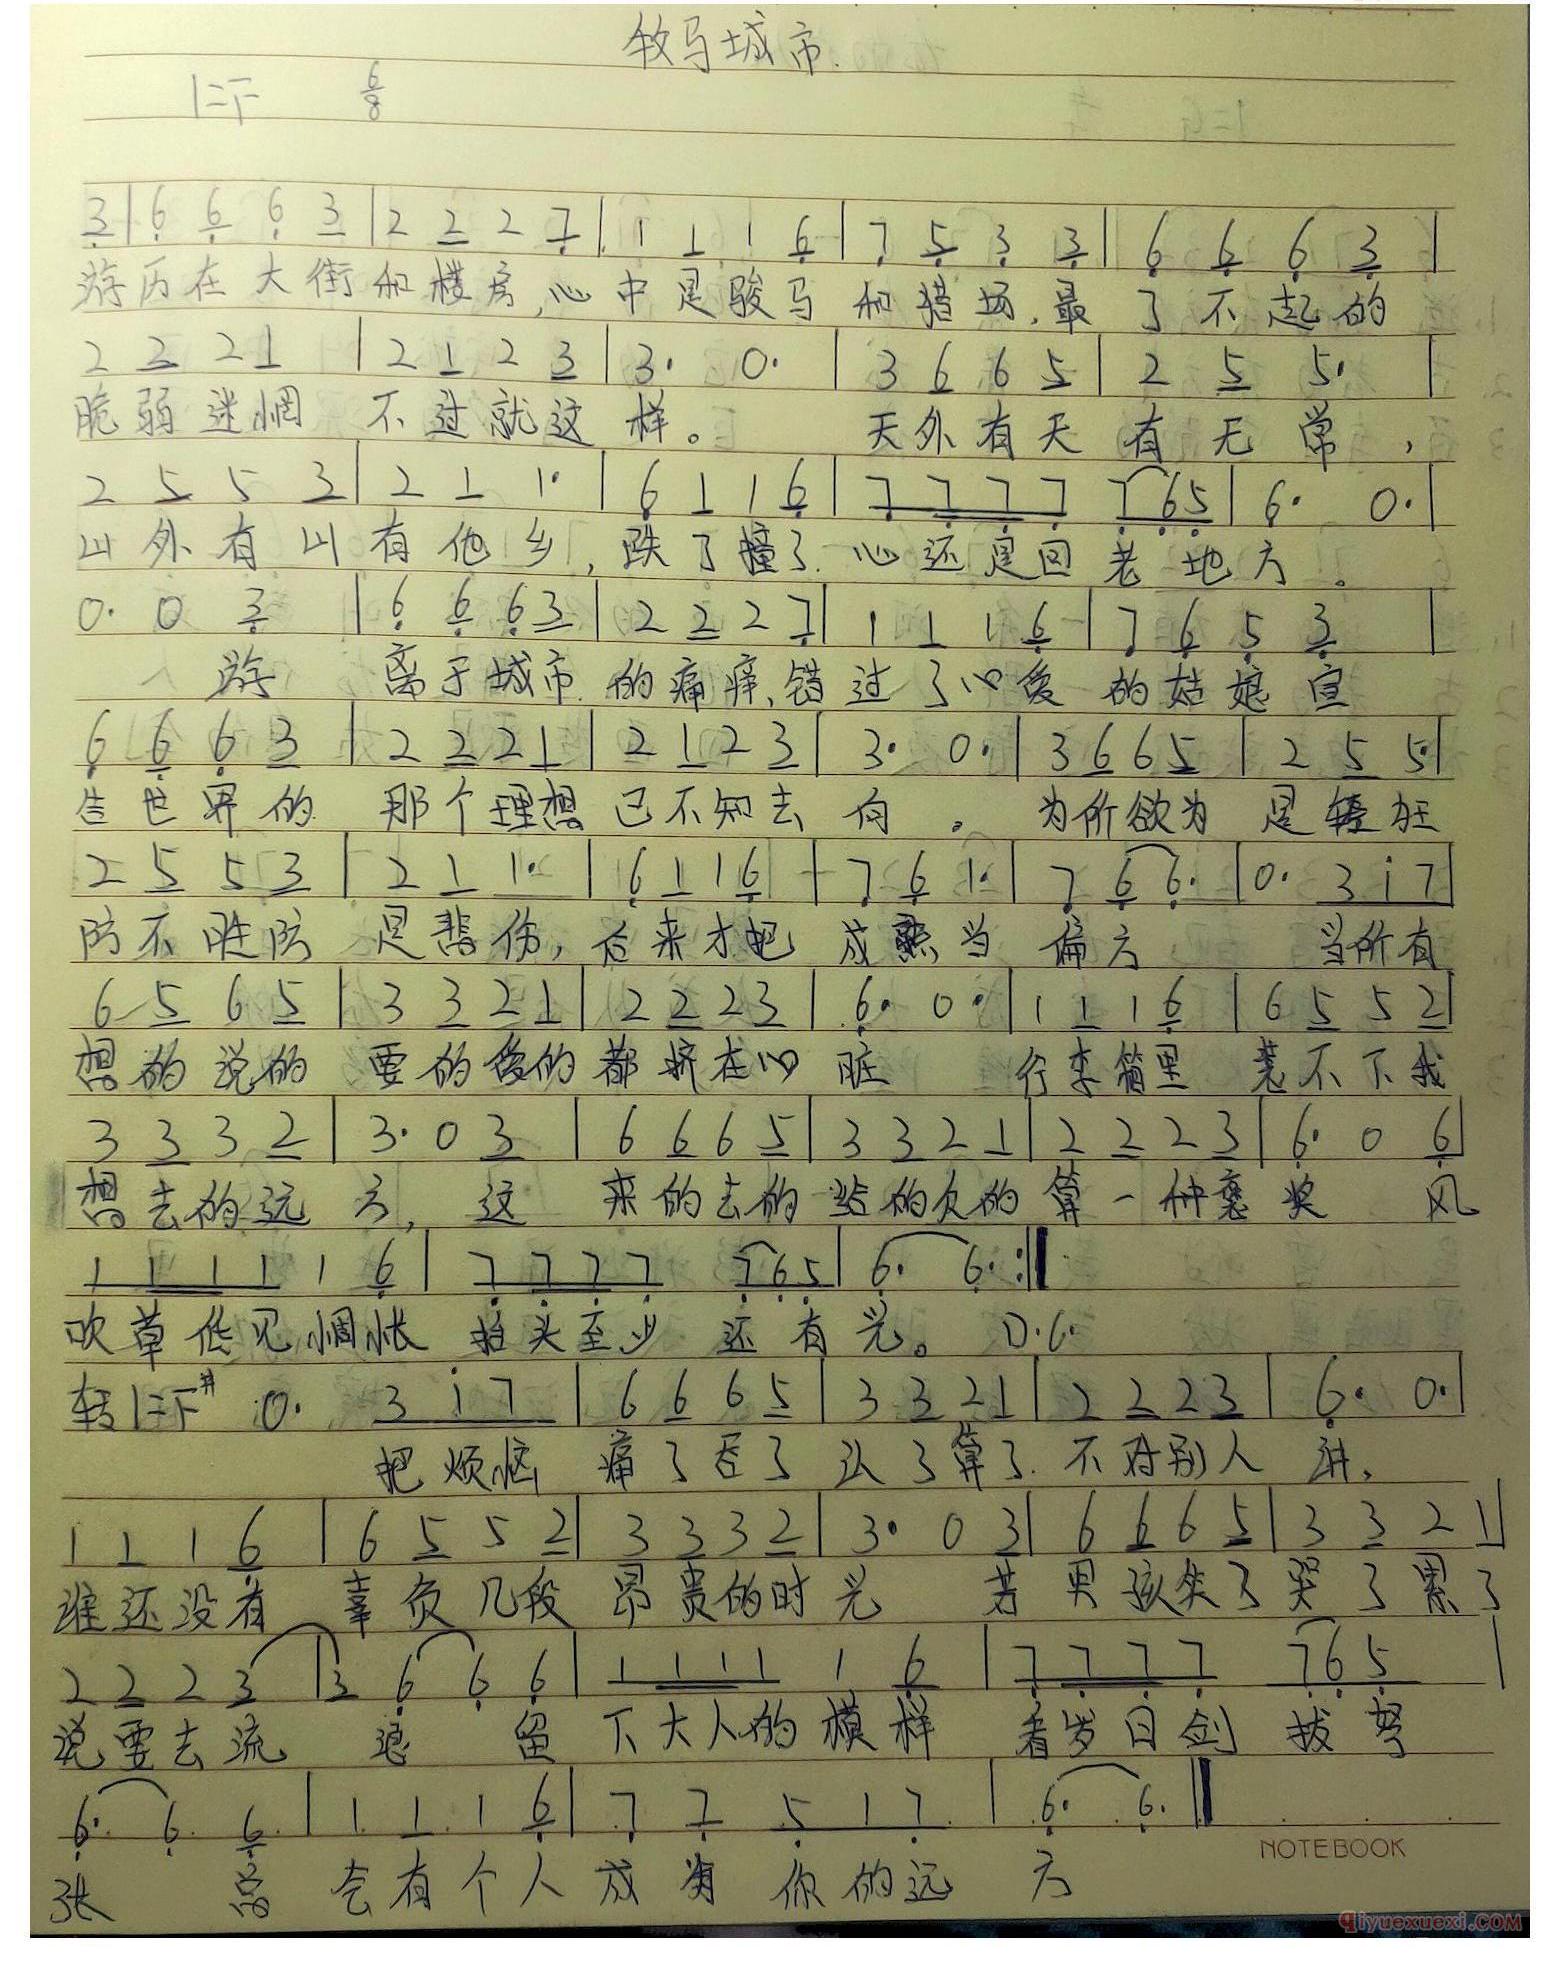 牧马城市.
1=F 6/8
3|6 6 6 3|2 2 2 7|1 1 1 6|7 5 3 3|6 6 6 3|
游历在大街和楼房,心中是骏马和猎场,最了不起的
2 2 2 1|2 1 2 3|3· 0·|3 6 6 5|2 5 5·|
脆弱迷惘 不过就这样。 天外有天有无常,
2 5 5 3|2 1 1·|6 1 1 6|7 7 7 7 765|6· 0·|
山外有山有他乡,跌了撞了.心还是回老地方。
0· 0 3|6 6 6 3|2 2 2 7|1 1 1 6|7 6 5 3|
游 离于城市.的痛痒,错过了心爱的姑娘宣
6 6 6 3|2 2 2 1|2 1 2 3|3· 0·|3 6 6 5|2 5 5·|
告世界的 那个理想已不知去向。 为所欲为是轻狂
2 5 5 3|2 1 1·|6 1 1 6|7 6 1·|7 6 6·|0· 3 i 7|
防不胜防 是悲伤,后来才把成熟当偏方 当所有
6 5 6 5|3 3 2 1|2 2 2 3|6· 0·|1 1 1 6|6 5 5 2|
想的说的 要的爱的都挤在心脏 行李箱里 装不下我
3 3 3 2|3· 0 3|6 6 6 5|3 3 2 1|2 2 2 3|6· 0 6|
想去的远方,这 来的去的 的欠的算一种褒奖 风
1 1 1 1 1 6|7 7 7 7 765|6· 6·:||
吹草低见惆怅 抬头至少 还有光。 D.C.
转1=F# 0· 3 i 7|6 6 6 5|3 3 2 1|2 2 2 3|6· 0·|
把烦恼 痛了吞了认了算了.不对别人讲,
1 1 1 6|6 5 5 2|3 3 3 2|3· 0 3|6 6 6 5|3 3 2 1|
谁还没有 辜负几段昂贵的时光 若男孩笑了哭了累了
2 2 2 3|3 6 6 6|1 1 1 1 1 6|7 7 7 7 765|
说要去流 浪 留下大人的模样 看岁日剑拔弩
6· 6 6|1 1 1 6|7 7 5 1 7|6· 6·||
张 总会有个人成为你的远方
NOTEBOOK
qiyuexuexi.COM